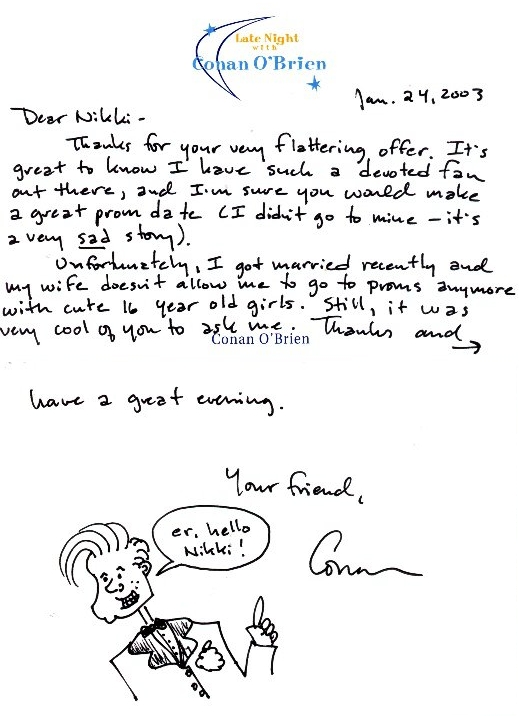 Late Night
with
Conan O'Brien
Jan. 24, 2003
Dear Nikki -
Thanks for your very flattering offer. It's
great to know I have such a devoted fan
out there, and I'm sure you would make
a great prom date (I didn't go to mine – it's
a very sad story).
Unfortunately, I got married recently and
my wife doesn't allow me to go to proms anymore
with cute 16 year old girls. Still, it was
very cool of you to ask me. Thanks and →
Conan O'Brien
have a great evening.
Your friend,
Conan
er, hello
Nikki!